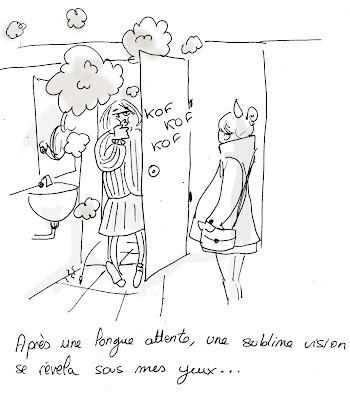 KOF
KOF
KOF
Après une longue attente, une sublime vision
se révéla sous mes yeux...